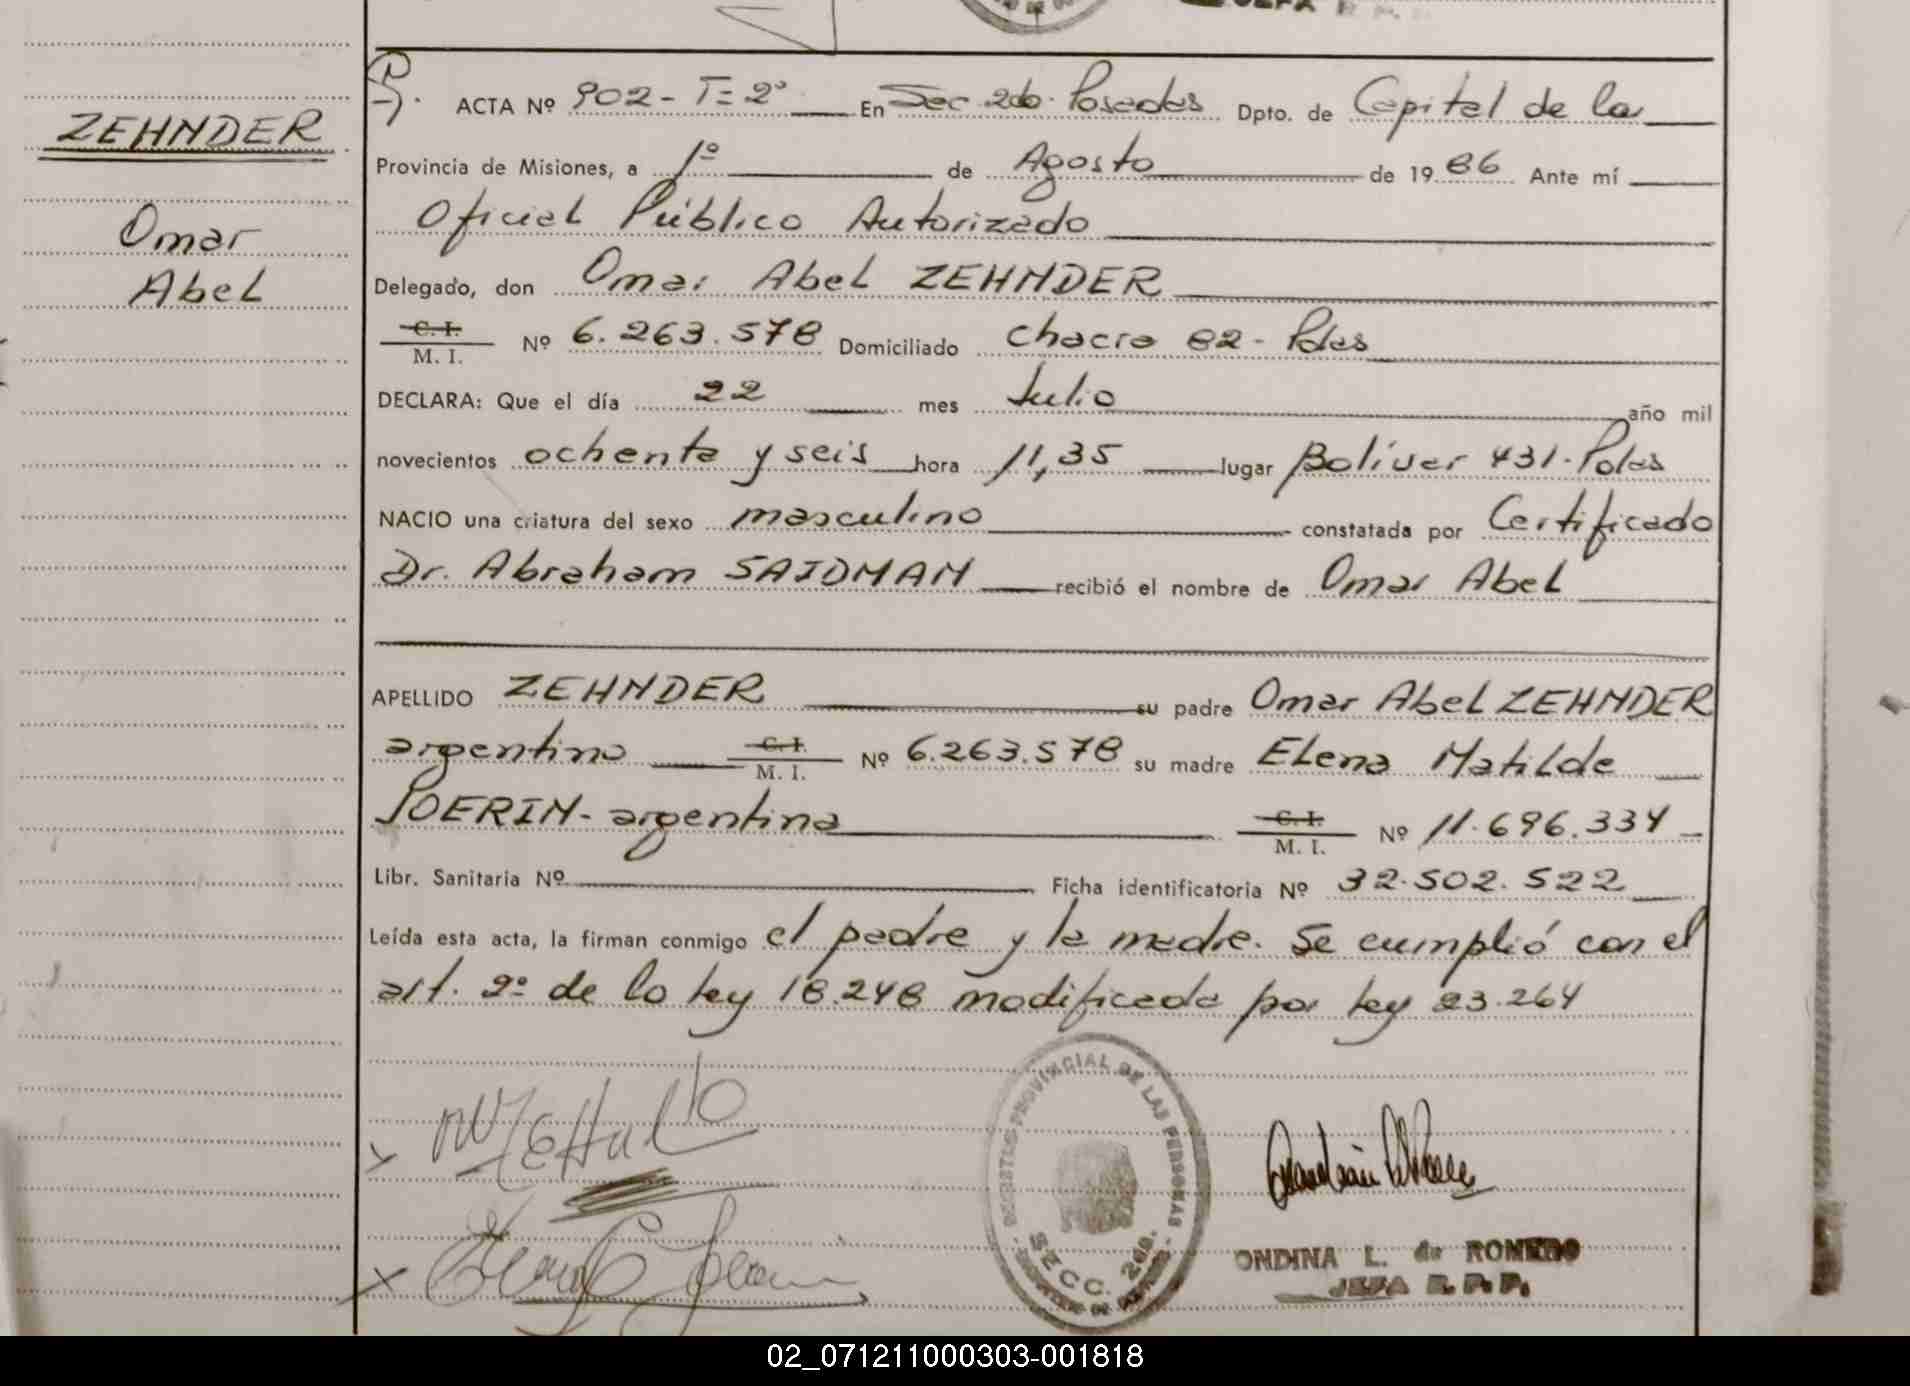 ZEHNDER
Omar
Abel
ACTA Nº 902 - T= 2º En Sec 2do. Posadas Dpto. de Capital de la
Provincia de Misiones, a 1º de Agosto de 1986 Ante mí
Oficial Público Autorizado
Delegado, don Omar Abel ZEHNDER
C. I.
M. I. Nº 6.263.578 Domiciliado Chacra 82 - Pdas
DECLARA: Que el día 22 mes Julio año mil
novecientos ochenta y seis hora 11,35 lugar Bolívar 431. Pdas
NACIO una criatura del sexo masculino constatada por Certificado
Dr. Abraham SAIDMAN recibió el nombre de Omar Abel
APELLIDO ZEHNDER su padre Omar Abel ZEHNDER
argentino C. I. M. I. Nº 6.263.578 su madre Elena Matilde
POERIN - argentina C. I. M. I. Nº 11.696.334
Libr. Sanitaria Nº Ficha identificatoria Nº 32.502.522
Leída esta acta, la firman conmigo el padre y la madre. Se cumplió con el
art. 2º de la ley 18.248 modificada por ley 23.264
REGISTRO PROVINCIAL DE LAS PERSONAS
SECC. 2da.
ONDINA L. de ROMERO
JEFA R. P. P.
02_071211000303-001818